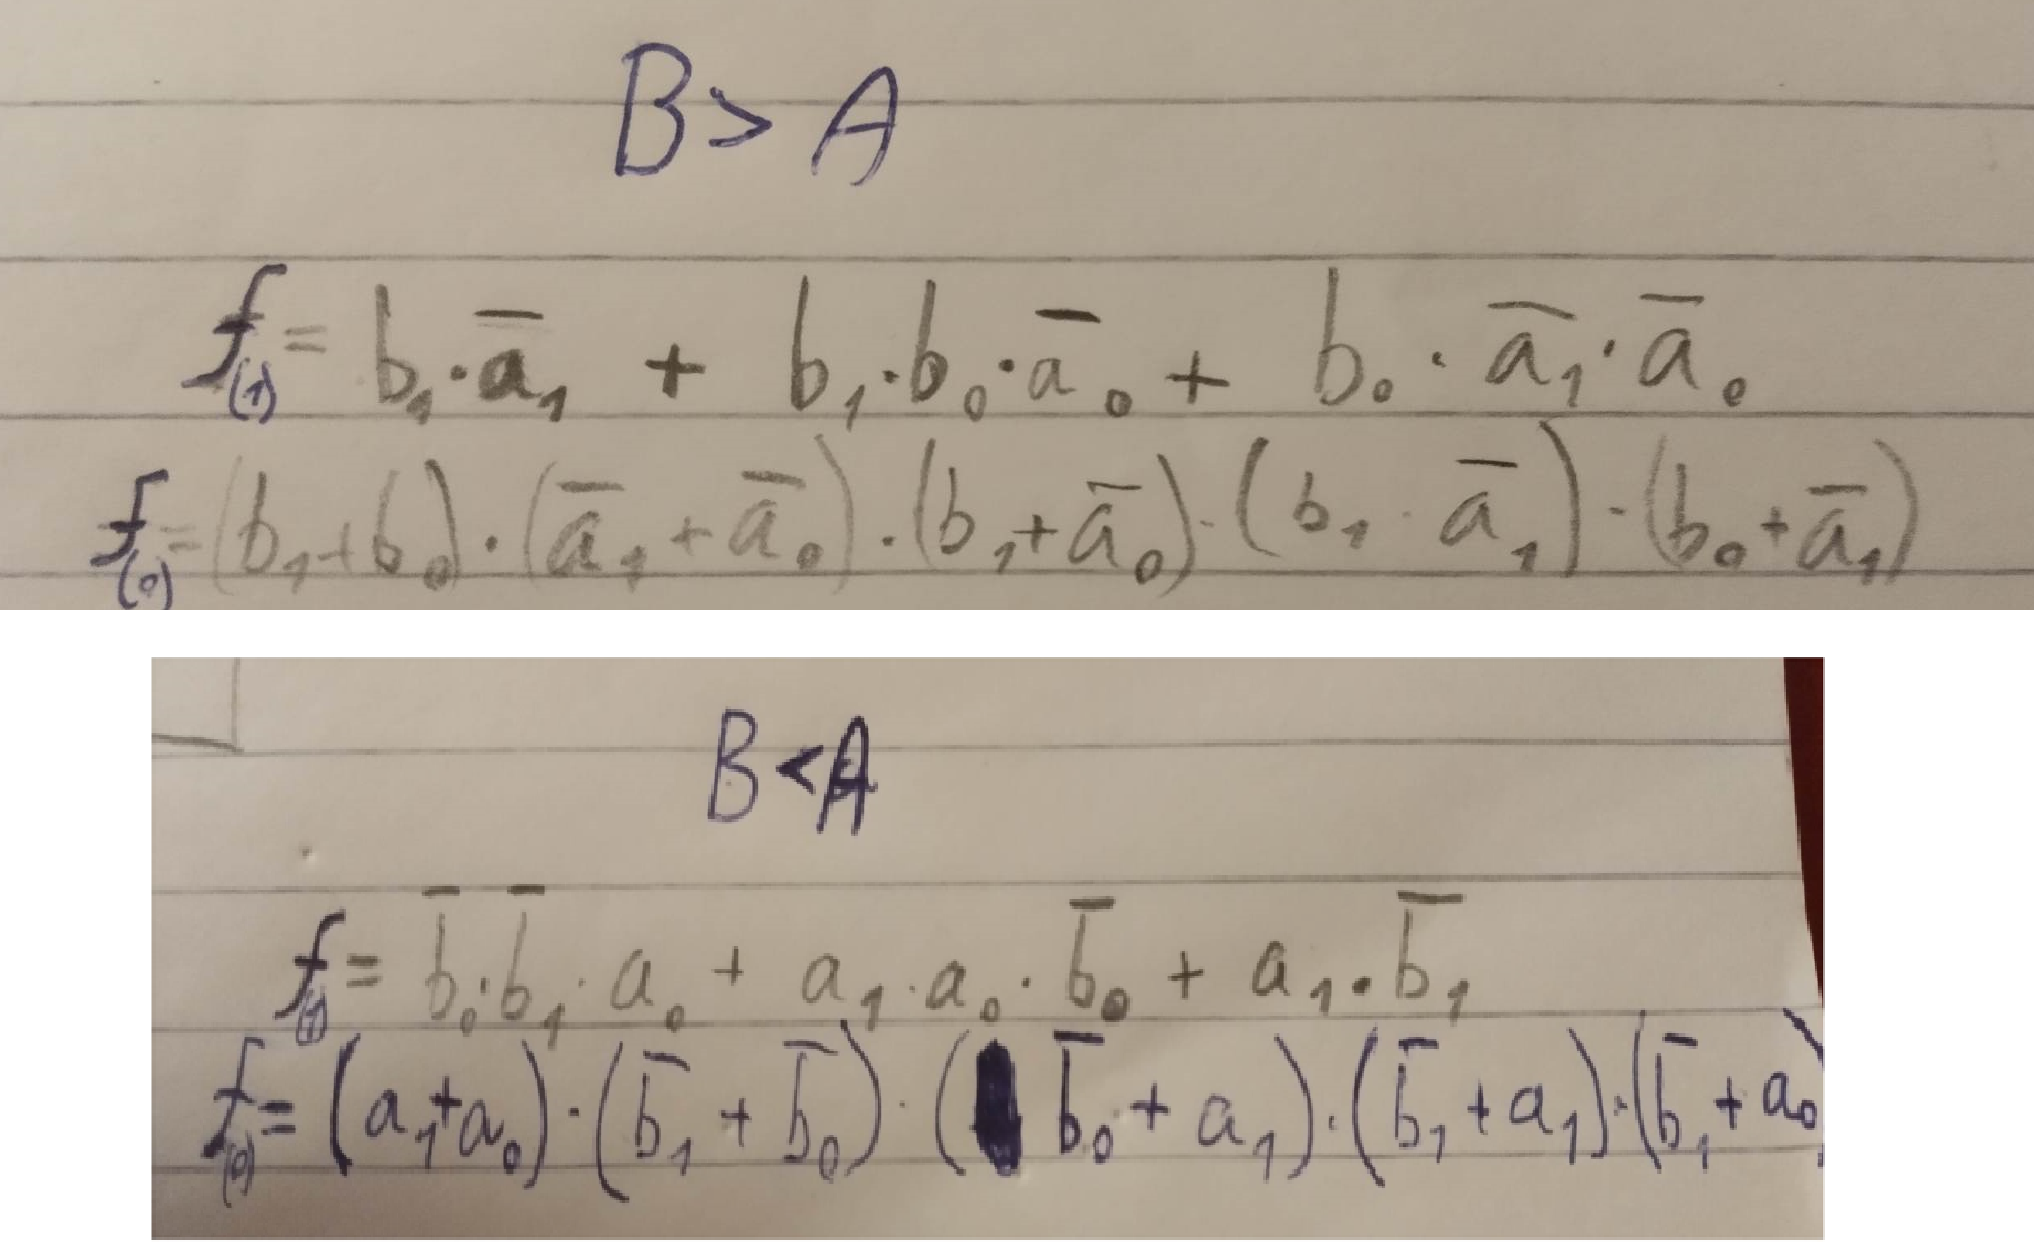 B > A
f₍₁₎ = b₁·a̅₁ + b₁·b₀·a̅₀ + b₀·a̅₁·a̅₀
f₍₀₎ = (b₁+b₀)·(a̅₁+a̅₀)·(b₁+a̅₀)·(b₁ · a̅₁)·(b₀+a̅₁)
B < A
f₍₁₎ = b̅₀·b̅₁·a₀ + a₁·a₀·b̅₀ + a₁·b̅₁
f₍₀₎ = (a₁+a₀)·(b̅₁+b̅₀)·(b̅₀+a₁)·(b̅₁+a₁)·(b̅₁+a₀)